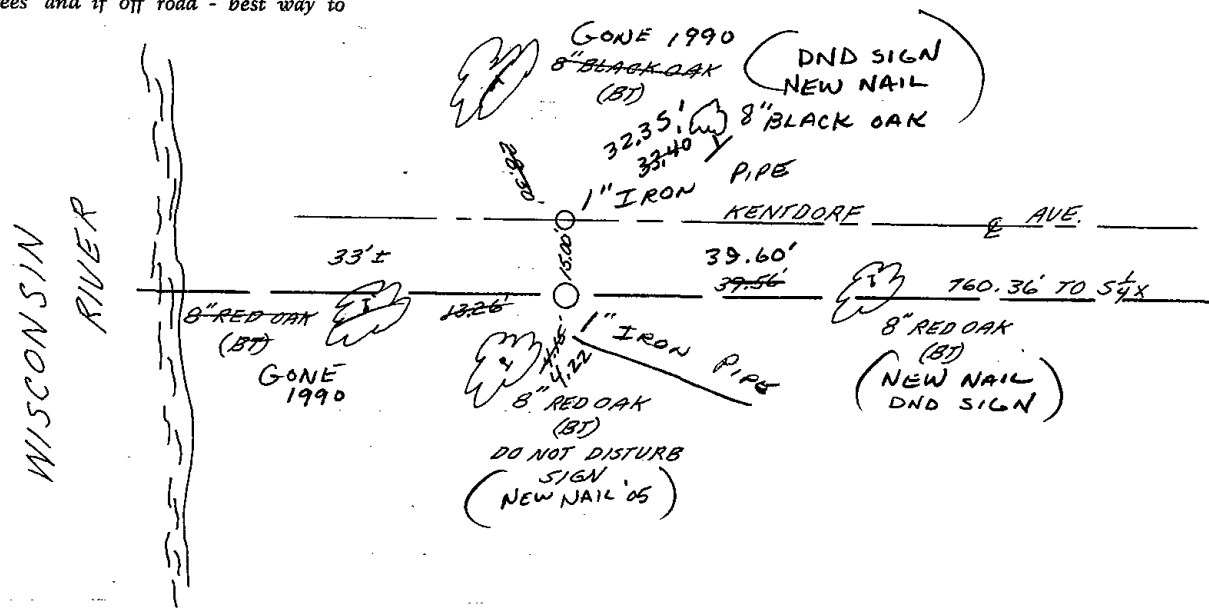 ees and if off road - best way to
GONE 1990
8" BLACK OAK
(BT)
(DND SIGN
NEW NAIL)
32.35'
33.40
8" BLACK OAK
28.30'
1" IRON PIPE
KENTDORF AVE.
WISCONSIN
RIVER
33'±
15.00'
39.60'
39.56'
760.36' TO S 1/4 X
8" RED OAK
(BT)
GONE
1990
13.26'
1" IRON PIPE
4.15
4.22
8" RED OAK
(BT)
DO NOT DISTURB
SIGN
(NEW NAIL '05)
8" RED OAK
(BT)
(NEW NAIL
DND SIGN)